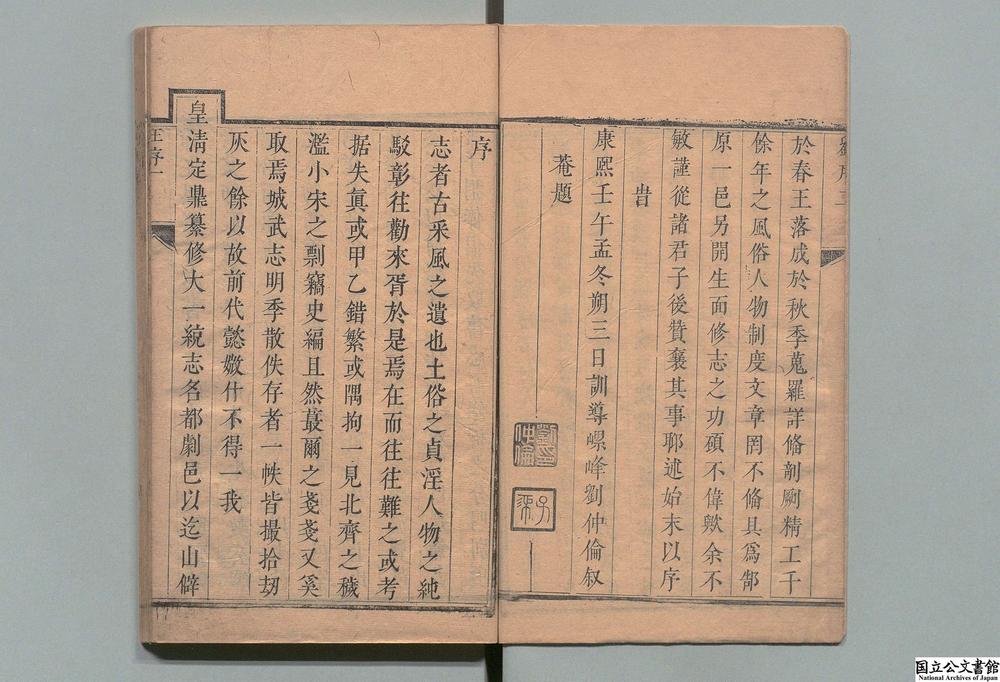 劉序三
於春王落成於秋季蒐羅詳脩剞劂精工千
餘年之風俗人物制度文章罔不脩具爲郜
原一邑另開生面修志之功碩不偉歟余不
敏謹從諸君子後贊襄其事耶述始末以序
旹
康熙壬午孟冬朔三日訓導嶧峰劉仲倫叙
菴題
劉印仲倫
序
志者古采風之遺也土俗之貞淫人物之純
駁彰往勸來胥於是焉在而往往難之或考
据失眞或甲乙錯繁或隅拘一見北齊之穢
濫小宋之剽竊史編且然蕞爾之戔戔又奚
取焉城武志明季散佚存者一帙皆撮拾刼
灰之餘以故前代懿媺什不得一我
皇淸定鼎纂修大一統志名都劇邑以迄山僻
王序一
国立公文書館
National Archives of Japan